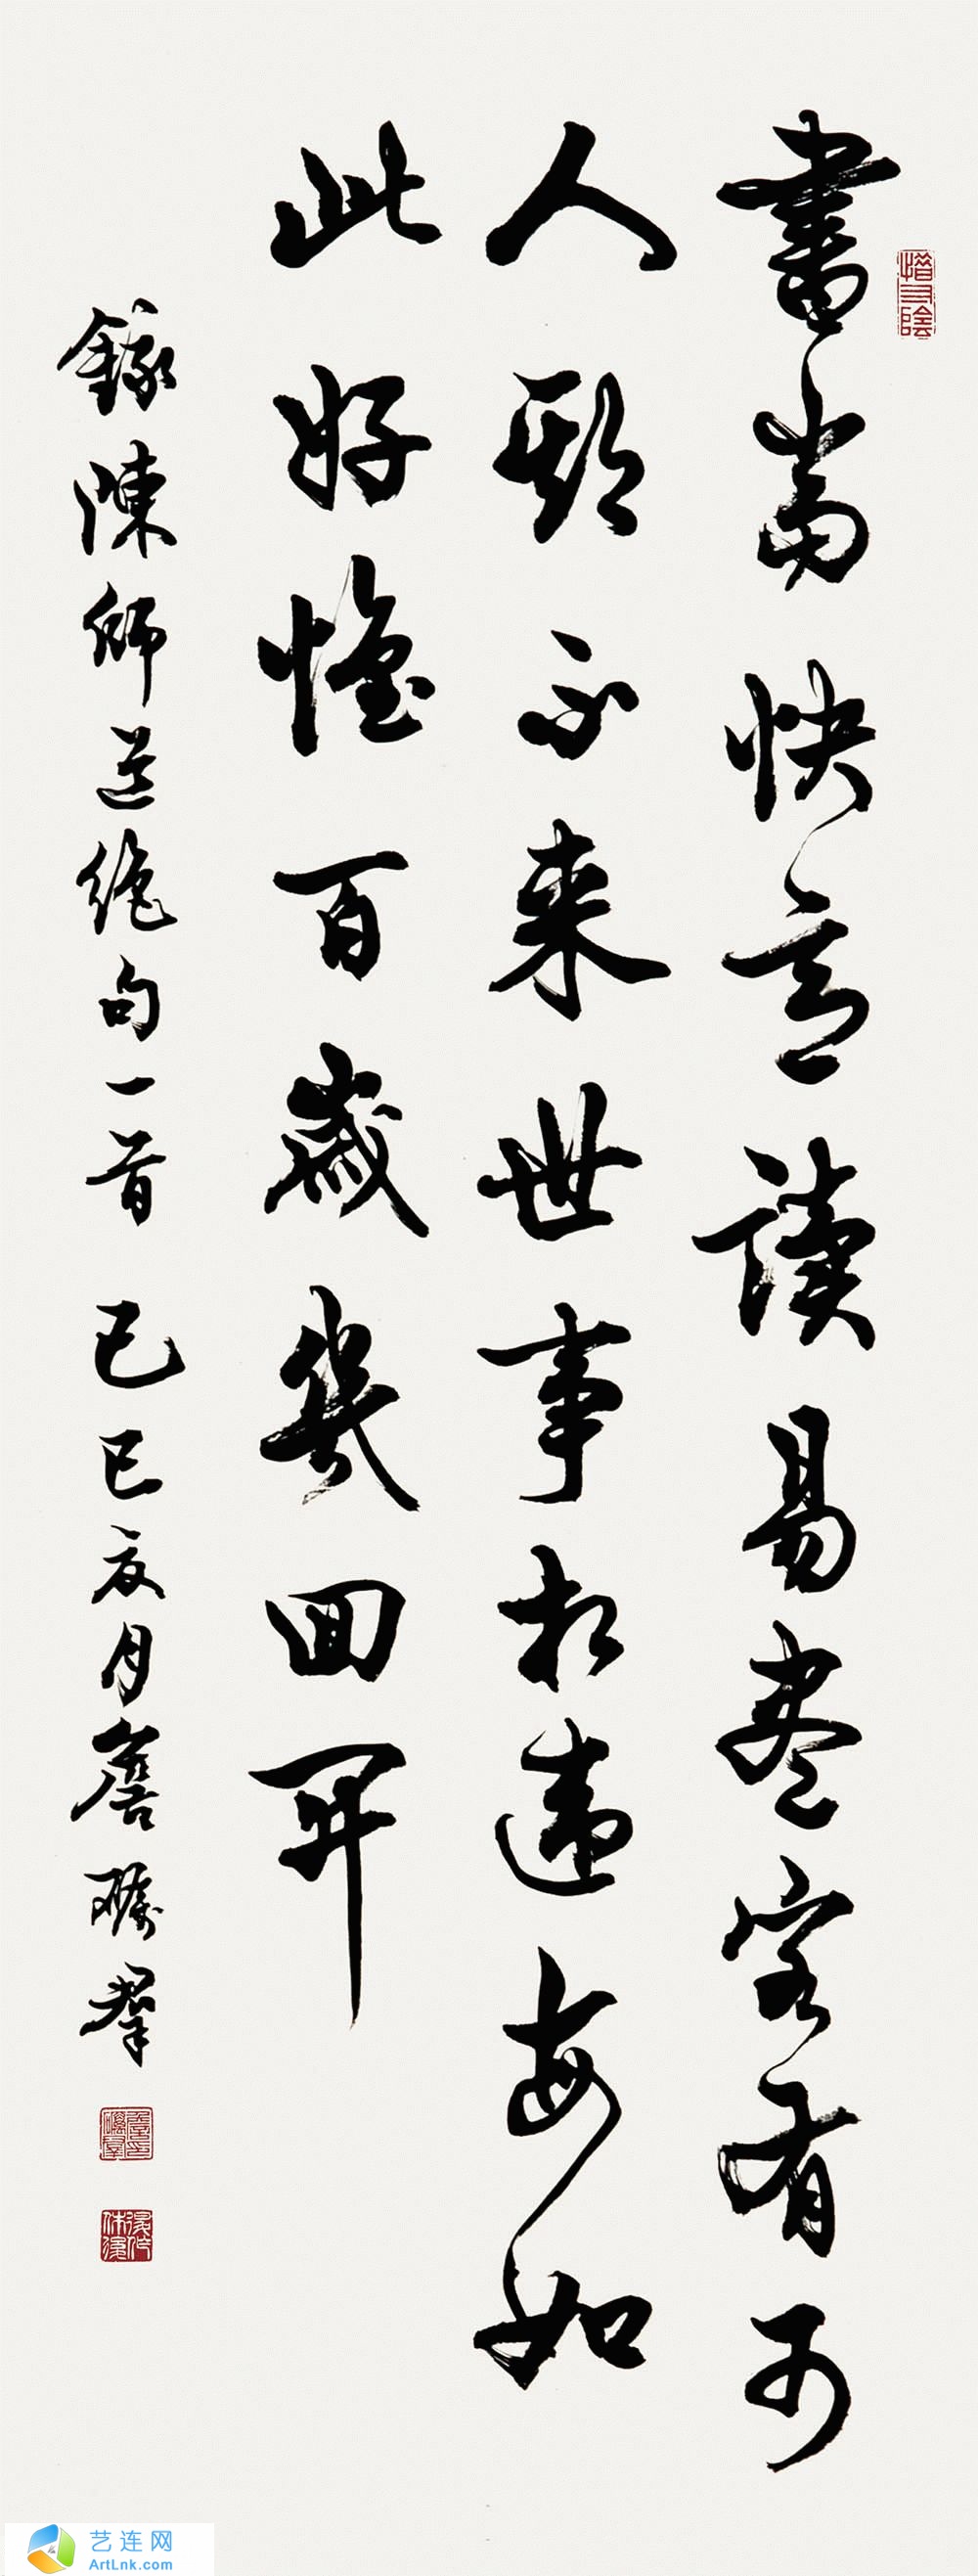 書當快意讀易盡客有可
人期不来世事相違每如
此好懷百歲幾回開
錄陳師道絕句一首 己巳夏月詹
惜寸陰
艺连网
ArtLnk.com